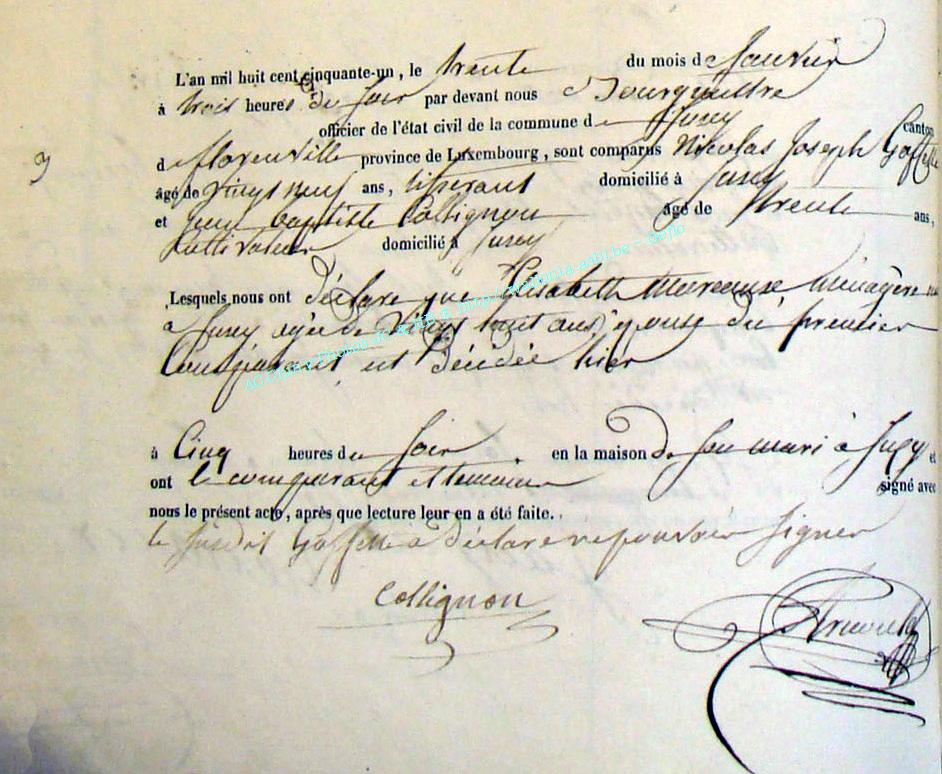 L'an mil huit cent cinquante-un, le trente du mois de Janvier
à trois heures du soir par devant nous Bourguemestre
officier de l'état civil de la commune de canton
3 de florenville province de Luxembourg, sont comparus Nicolas Joseph
âgé de vingt neuf ans, domicilié à
et jean baptiste Collignon âgé de trente ans,
Cultivateur domicilié à
Lesquels nous ont déclaré que Elisabeth ménagère
à agée de vingt huit ans, épouse du premier
Comparant est décédée hier
à Cinq heures du soir en la maison de son mari à et
ont le comparant et temoin signé avec
nous le présent acte, après que lecture leur en a été faite.
le susdit a déclaré ne pouvoir signer
Collignon